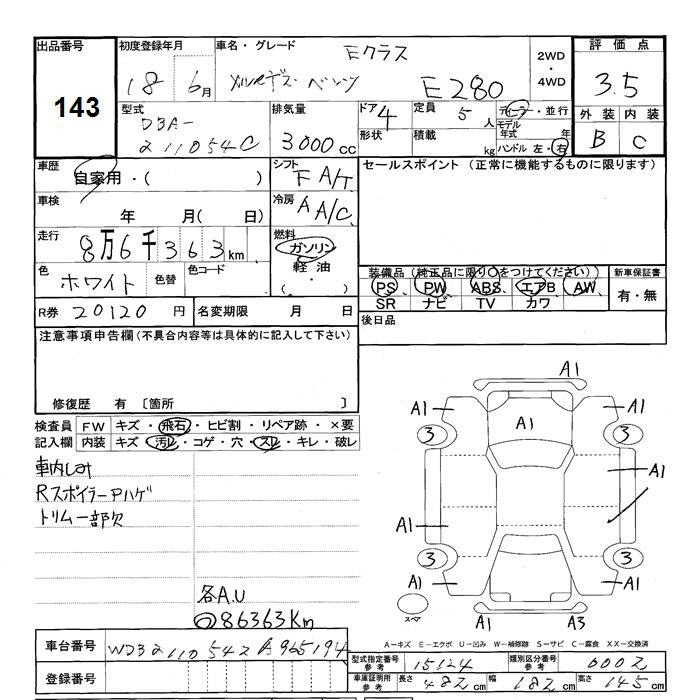 出品番号
143
初度登録年月
18 6月
車名・グレード
Eクラス
メルセデス・ベンツ
E280
2WD
・
4WD
評価点
3.5
外装 内装
B C
型式
DBA-
211054C
排気量
3000cc
ドア 4
形状
定員 5人
積載 kg
ディーラー・並行
モデル
年式 年
ハンドル 左・右
車歴
自家用・( )
シフト
F A/T
車検
年 月( 日)
冷房
A A/C
走行
8万6千363km
燃料
ガソリン
軽油
( ・ )
色
ホワイト
色替
色コード
セールスポイント (正常に機能するものに限ります)
装備品(純正品に限り○をつけてください)
PS PW ABS エアB AW
SR ナビ TV カワ
新車保証書
有・無
R券 20120円
名変期限 月 日
後日品
注意事項申告欄(不具合内容等は具体的に記入して下さい)
修復歴 有 〔箇所 〕
検査員
記入欄
FW キズ・飛石・ヒビ割・リペア跡・×要
内装 キズ・汚レ・コゲ・穴・スレ・キレ・破レ
車内しみ
RスポイラーPハゲ
トリム一部欠
各A.U
86363Km
A1
A1 A1
A1
3 3
A1
A1
3 3
A1 A1
A1 A3
スペア
A-キズ E-エクボ U-凹み W-補修跡 S-サビ C-腐食 XX-交換済
車台番号
WDB2110542A965194
登録番号
型式指定番号
参考
15124
類別区分番号
参考
0002
車庫証明用
参考
長さ 482cm 幅 182cm 高さ 145cm